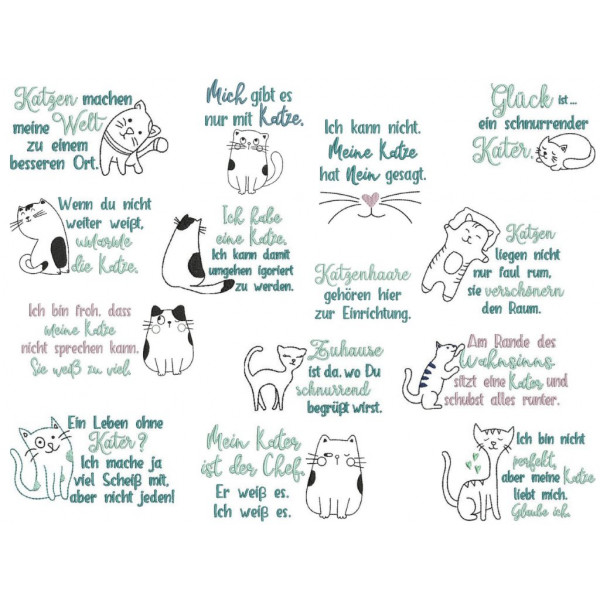 Katzen machen
meine Welt
zu einem
besseren Ort.
Mich gibt es
nur mit Katze.
Ich kann nicht.
Meine Katze
hat Nein gesagt.
Glück ist...
ein schnurrender
Kater.
Wenn du nicht
weiter weißt,
umarme
die Katze.
Ich habe
eine Katze.
Ich kann damit
umgehen igoriert
zu werden.
Katzenhaare
gehören hier
zur Einrichtung.
Katzen
liegen nicht
nur faul rum,
sie verschönern
den Raum.
Ich bin froh, dass
meine Katze
nicht sprechen kann.
Sie weiß zu viel.
Zuhause
ist da, wo Du
schnurrend
begrüßt wirst.
Am Rande des
Wahnsinns
sitzt eine Kater und
schubst alles runter.
Ein Leben ohne
Kater?
Ich mache ja
viel Scheiß mit,
aber nicht jeden!
Mein Kater
ist der Chef.
Er weiß es.
Ich weiß es.
Ich bin nicht
perfekt,
aber meine Katze
liebt mich.
Glaube ich.